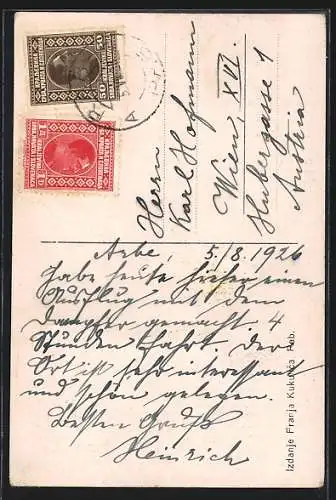 Herrn
Karl Hofmann
Wien, XVI.
Hubergasse 1
Austria
Arbe, 5./8. 1926
Habe heute hieher einen
Ausflug mit dem
Dampfer gemacht. 4
Stunden Fahrt. Der
Ort ist sehr interessant
und schön gelegen.
Besten Gruß
Heinrich
Izdanje Franja Kukulića Rab.
50
50
1 Д
1 D